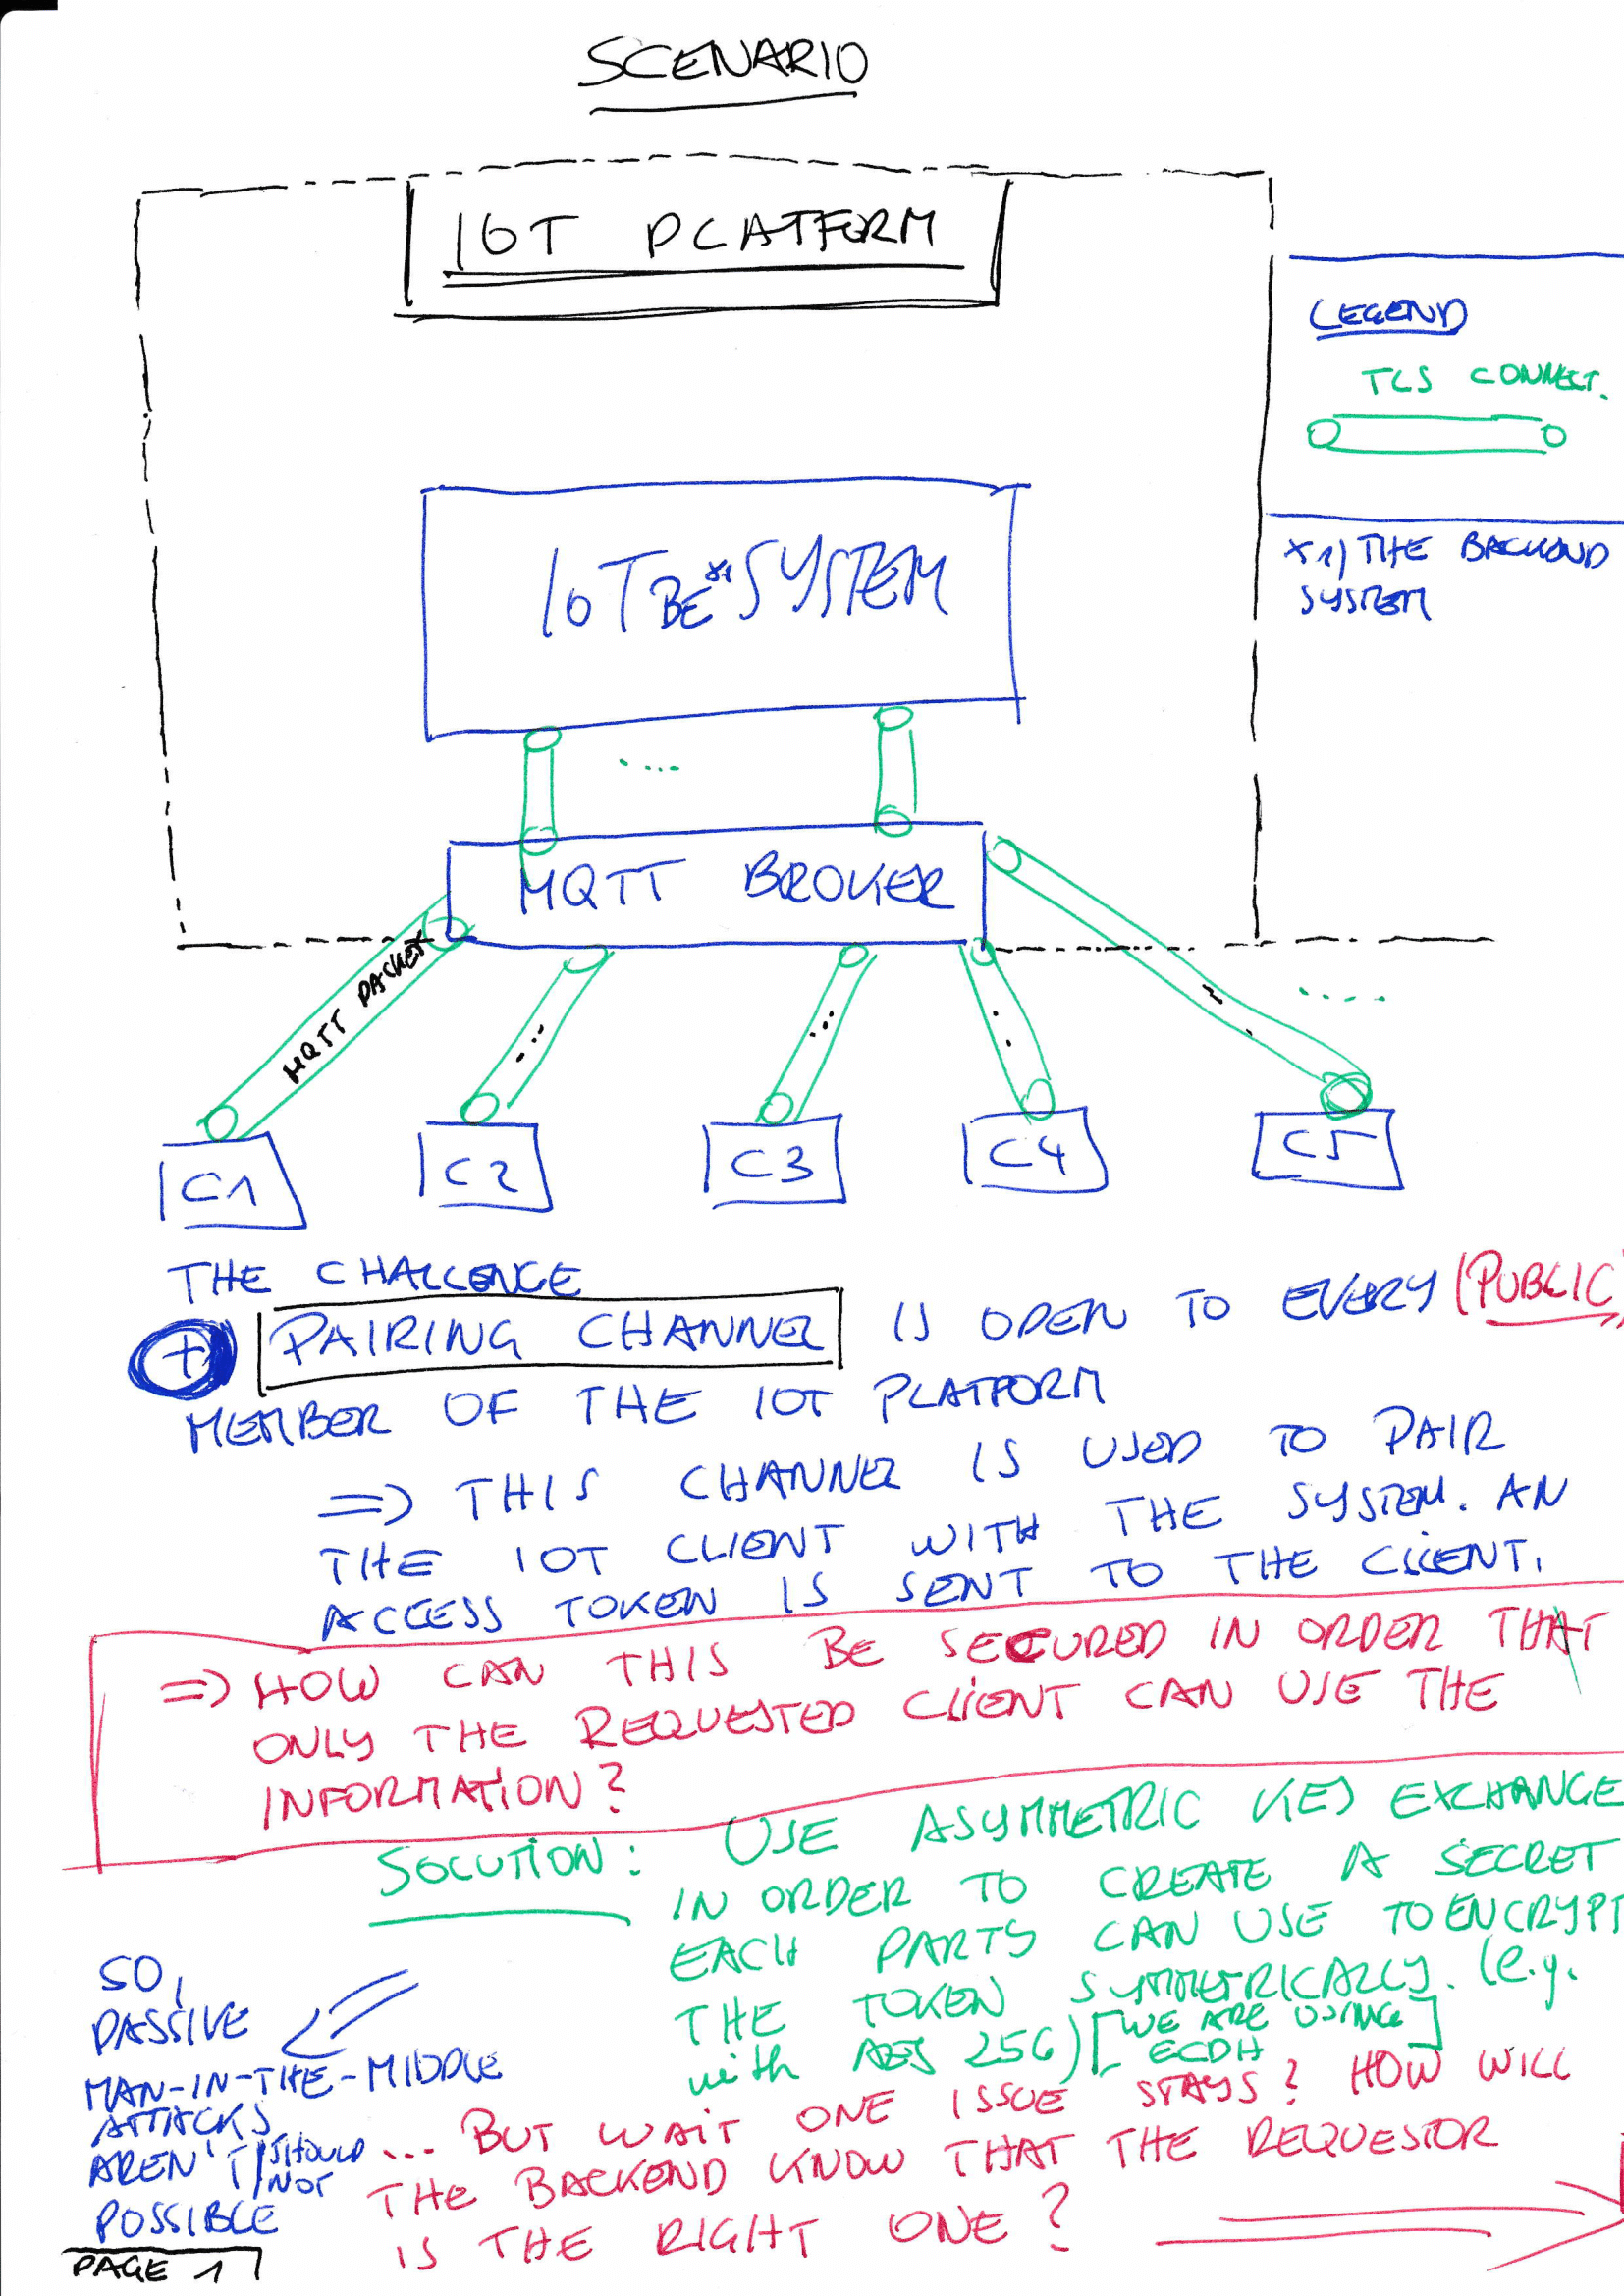 SCENARIO
IOT PLATFORM
LEGEND
TLS CONNECT.
*1) THE BACKEND
SYSTEM
IOT BE*1 SYSTEM
....
MQTT BROKER
MQTT PACKET
...
...
...
....
C1
C2
C3
C4
C5
THE CHALLENGE
+ PAIRING CHANNEL IS OPEN TO EVERY (PUBLIC)
MEMBER OF THE IOT PLATFORM
=> THIS CHANNEL IS USED TO PAIR
THE IOT CLIENT WITH THE SYSTEM. AN
ACCESS TOKEN IS SENT TO THE CLIENT.
=> HOW CAN THIS BE SECURED IN ORDER THAT
ONLY THE REQUESTED CLIENT CAN USE THE
INFORMATION?
SOLUTION: USE ASYMMETRIC KEY EXCHANGE
IN ORDER TO CREATE A SECRET
EACH PARTY CAN USE TO ENCRYPT
THE TOKEN SYMMETRICALLY. (e.g.
with AES 256) [WE ARE USING
ECDH]
SO,
PASSIVE
MAN-IN-THE-MIDDLE
ATTACKS
AREN'T/SHOULD
NOT
POSSIBLE
... BUT WAIT ONE ISSUE STAYS? HOW WILL
THE BACKEND KNOW THAT THE REQUESTOR
IS THE RIGHT ONE?
PAGE 1